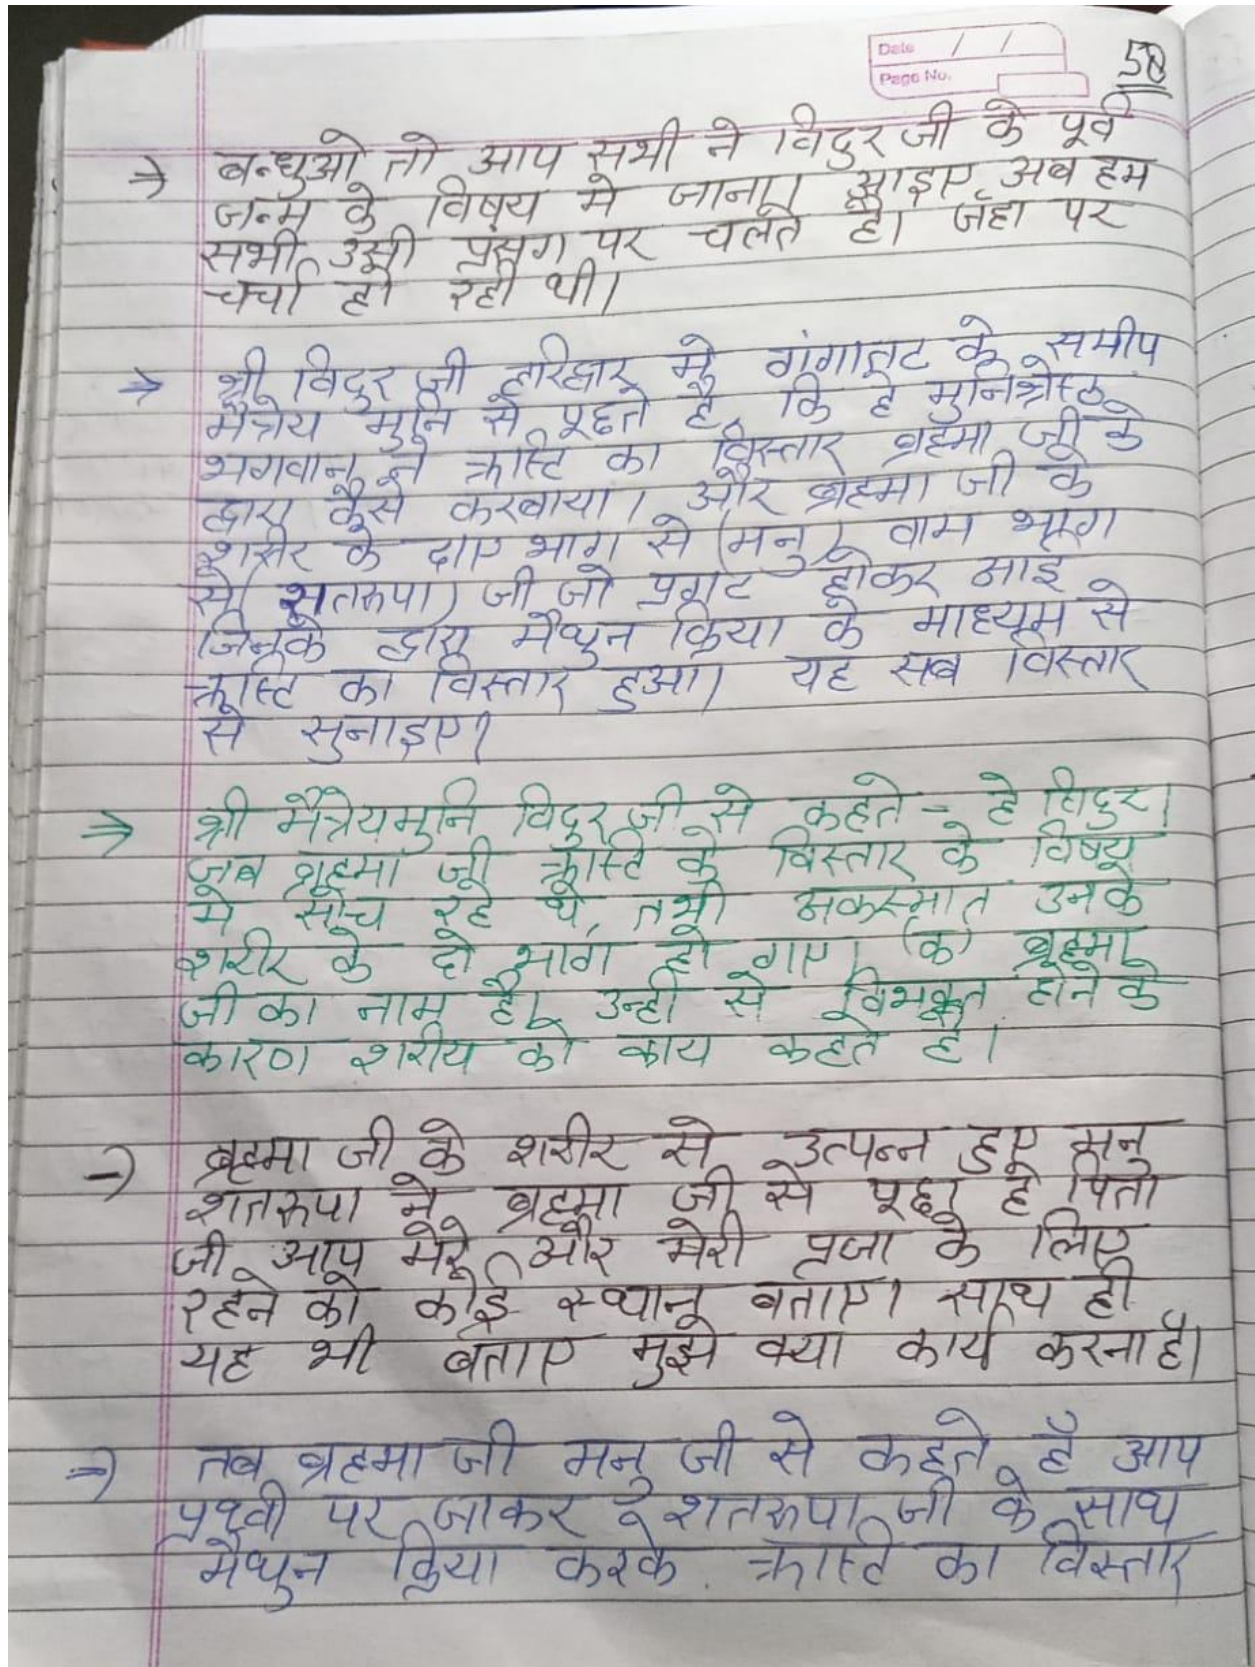 Date / /
Page No.
50
→ बन्धुओ तो आप सभी ने विदुर जी के पूर्व
जन्म के विषय मे जाना। आइए अब हम
सभी उसी प्रसंग पर चलते है। जँहा पर
चर्चा हो रही थी।
→ श्री विदुर जी हरिद्वार मे गंगातट के समीप
मैत्रेय मुनि से पूछते है, कि हे मुनिश्रेष्ठ
भगवान ने का विस्तार ब्रह्मा जी के
द्वारा कैसे करवाया। और ब्रहमा जी के
शरीर के दाए भाग से (मनु), वाम भाग
से (शतरूपा) जी जो प्रगट होकर आई
जिनके द्वारा मैथुन क्रिया के माध्यम से
का विस्तार हुआ। यह सब विस्तार
से सुनाइए।
⇒ श्री मैत्रेयमुनि विदुर जी से कहते - हे विदुर।
जब ब्रहमा जी के विस्तार के विषय
मे सोच रहे थे, तभी अकस्मात उनके
शरीर के दो भाग हो गए। (क) ब्रहमा
जी का नाम है। उन्ही से विभक्त होने के
कारण शरीय को काय कहते है।
→ ब्रहमा जी के शरीर से उत्पन्न हुए मनु
शतरूपा ने ब्रहमा जी से पूछा हे पिता
जी आप मेरे और मेरी प्रजा के लिए
रहने को कोई स्थान बताए। साथ ही
यह भी बताए मुझे क्या कार्य करना है।
⇒ तब ब्रहमा जी मनु जी से कहते है आप
प्रथ्वी पर जाकर शतरूपा जी के साथ
मैथुन क्रिया करके का विस्तार